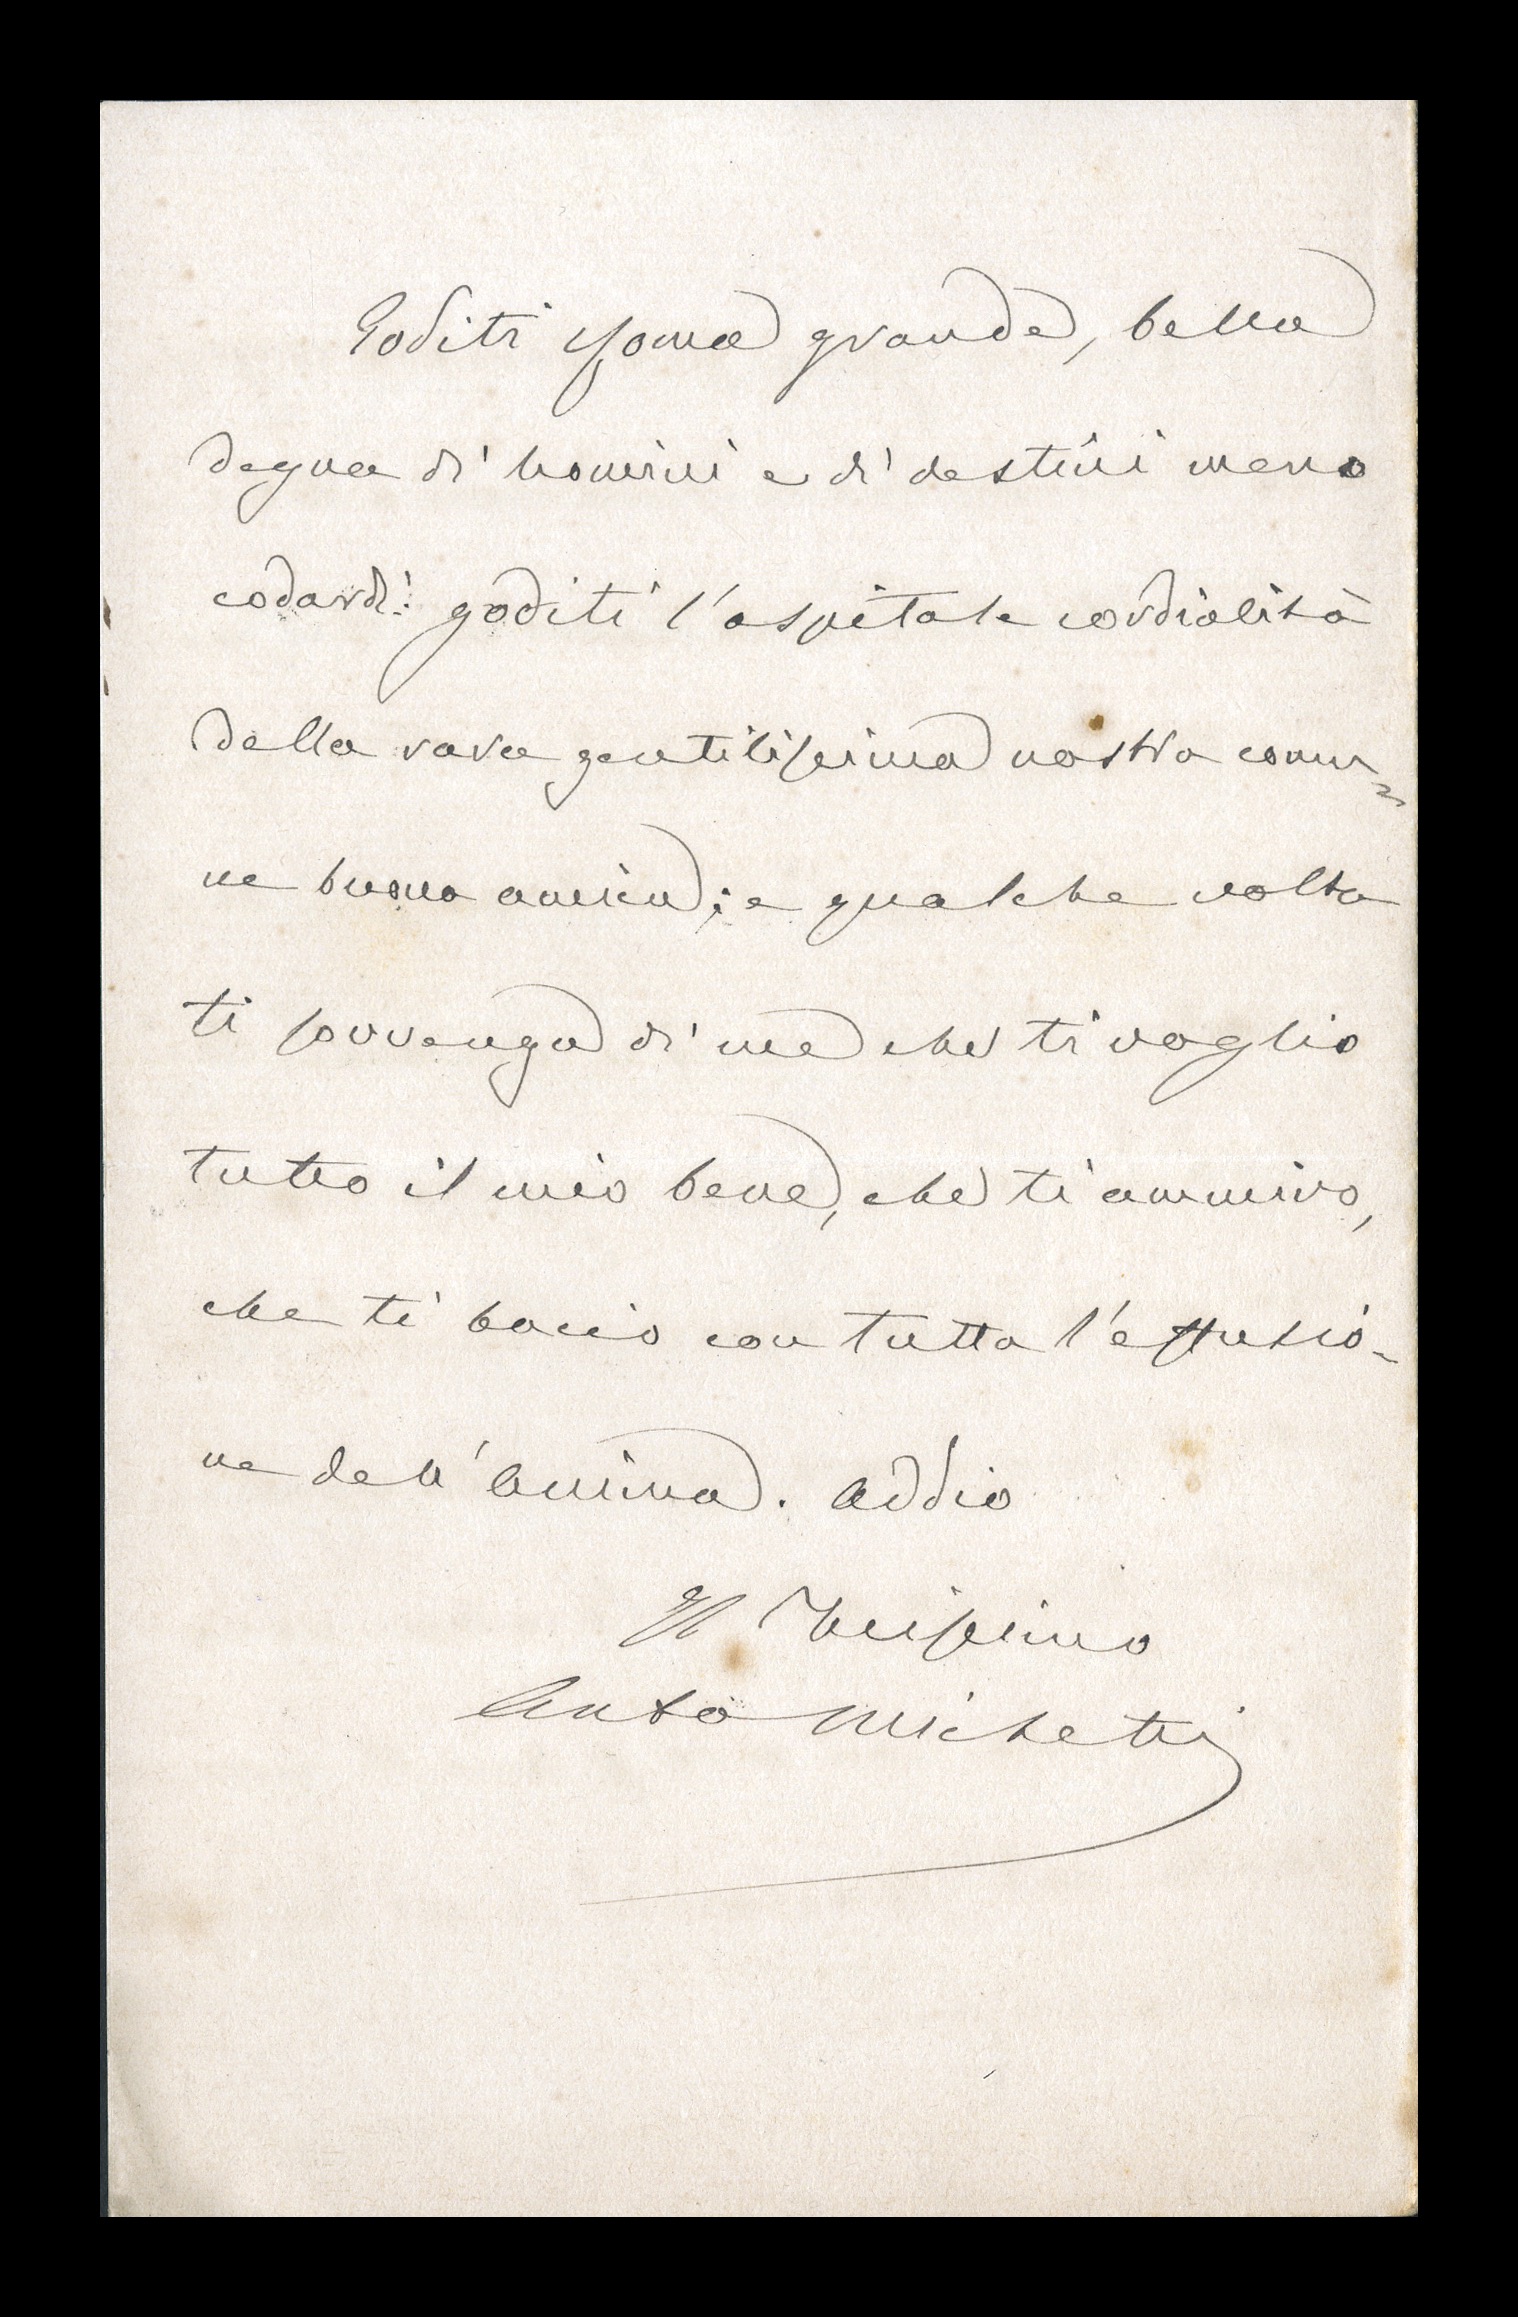 Goditi Roma grande, bella
degna di uomini e di destini meno
codardi: goditi l'ospitale cordialità
della rara gentilissima nostra comu=
ne buona amica; e qualche volta
ti sovvenga di me che ti voglio
tutto il mio bene, che ti ammiro,
che ti bacio con tutta l'effusio-
ne dell'anima. Addio
Il Tuissimo
Anto Michetti